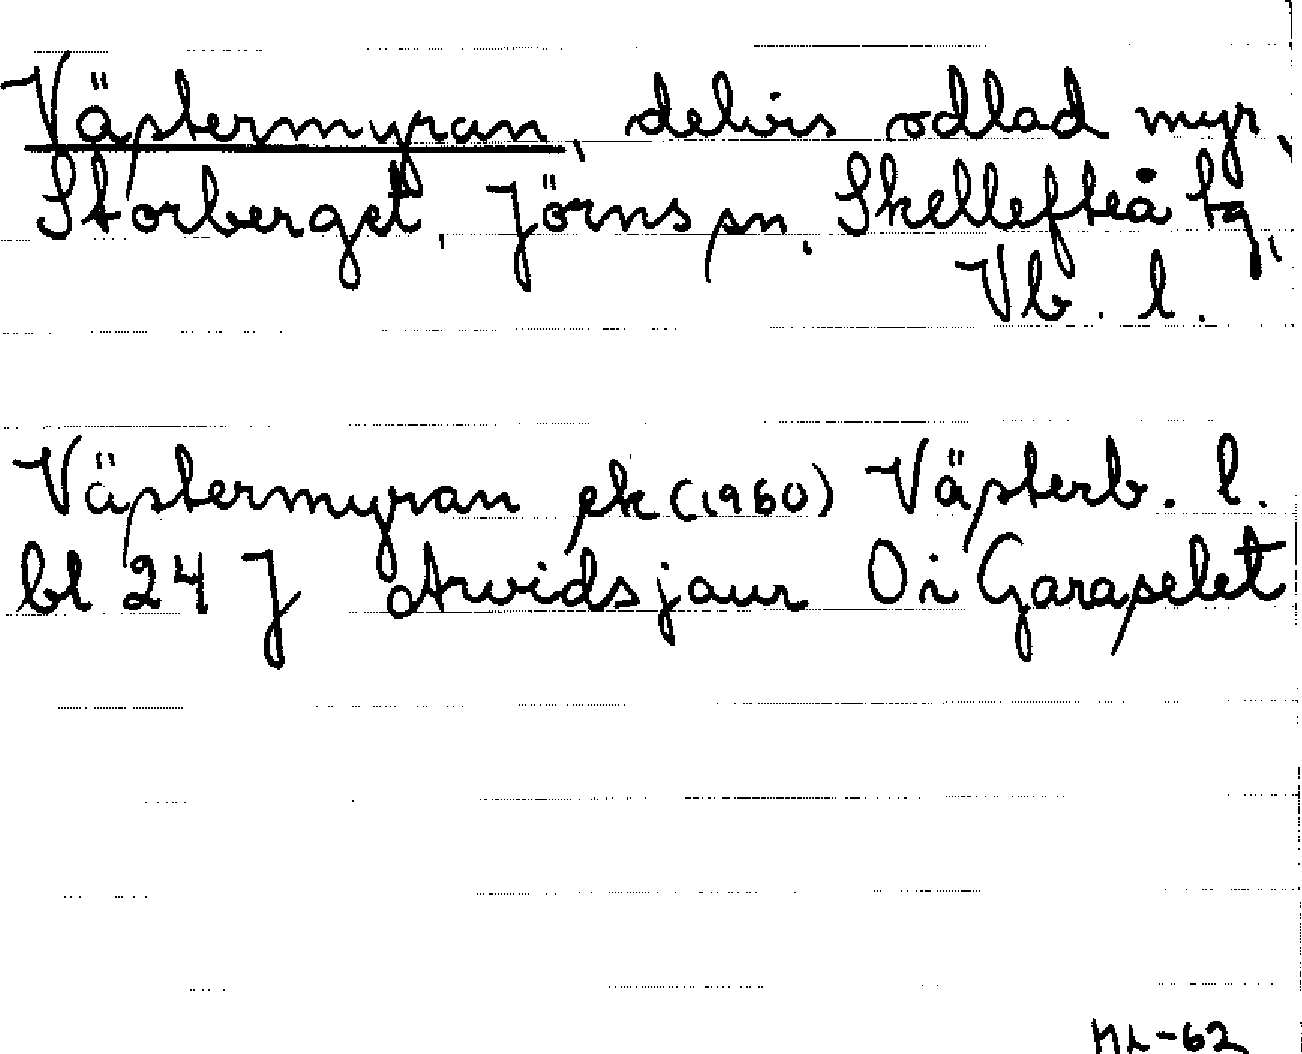 Västermyran, delvis odlad myr,
Storberget, Jörns sn, Skellefteå tg,
Vb. l.
Västermyran ek (1960) Västerb. l.
bl 24 J Arvidsjaur Oi Garaselet
ML-62